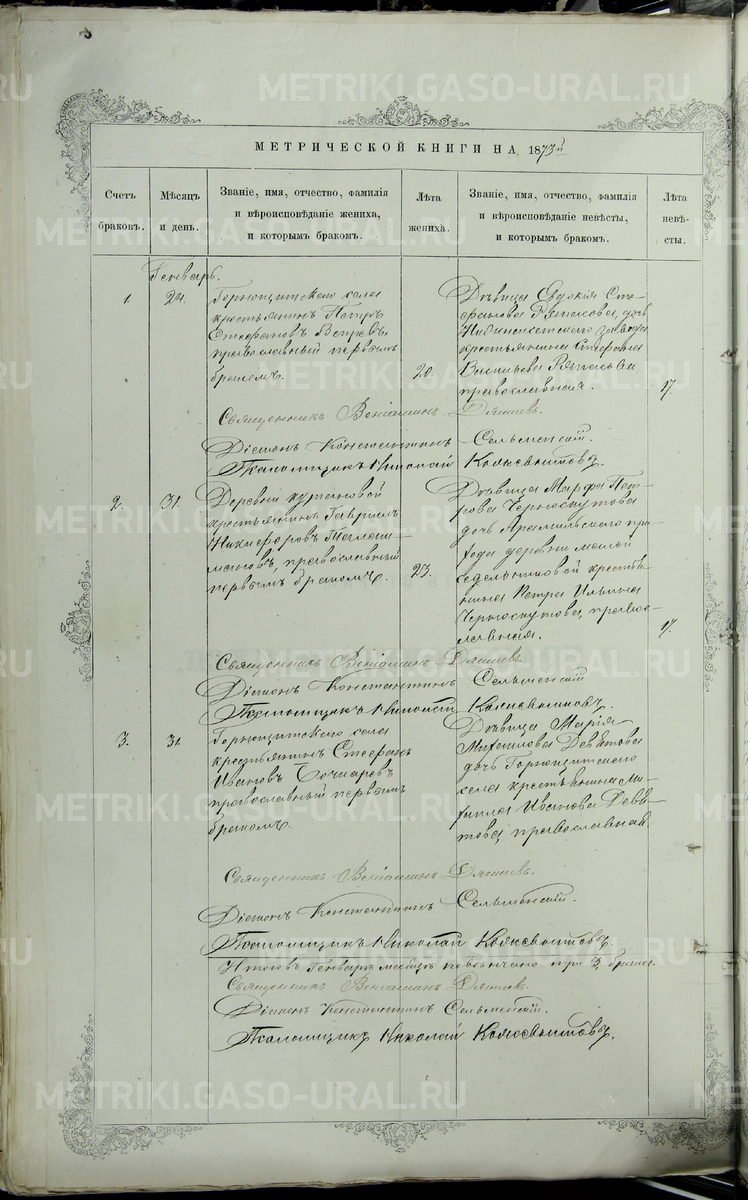 МЕТРИЧЕСКОЙ КНИГИ НА 1873й
Счетъ браковъ.
Мѣсяцъ и день.
Званіе, имя, отчество, фамилія
и вѣроисповѣданіе жениха,
и которымъ бракомъ.
Лѣта жениха.
Званіе, имя, отчество, фамилія
и вѣроисповѣданіе невѣсты,
и которымъ бракомъ.
Лѣта невѣ-
сты.
Генварь.
1.
Горнощитскаго села
крестьянинъ Петръ
Стефановъ
православный первымъ
бракомъ.
20.
Дѣвица Евдокія Сте-
фанова дочь
Нижнеисетскаго завода
крестьянина Стефана
Васильева
православная.
17.
Священникъ Веніаминъ
Діаконъ Константинъ Сельменскій.
Псаломщикъ Николай
2.
31.
Деревни Кургановой
крестьянинъ Гавріилъ
Никифоровъ
православный
первымъ бракомъ.
23.
Дѣвица Марфа Пет-
рова Черноскутова
дочь Арамильскаго при-
хода деревни малой
Седельниковой крестья-
нина Петра Ильина
Черноскутова, правос-
лавная.
17.
Священникъ Веніаминъ
Діаконъ Константинъ Сельменскій
Псаломщикъ Николай
3.
31.
Горнощитскаго села
крестьянинъ Стефанъ
Ивановъ Бочкаревъ
православный первымъ
бракомъ
Дѣвица Марія
Михаилова Девятова
дочь Горнощитскаго
села крестьянина Ми-
хаила Иванова Девя-
това, православная.
Священникъ Веніаминъ
Діаконъ Константинъ Сельменскій.
Псаломщикъ Николай
Итого въ Генварѣ мѣсяцѣ повѣнчано три 3, брака.
Священникъ Веніаминъ
Діаконъ Константинъ Сельменскій.
Псаломщикъ Николай
METRIKI.GASO-URAL.RU